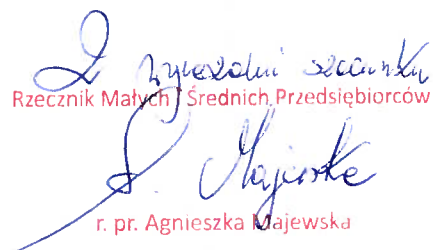 Z wyrazami szacunku
Rzecznik Małych i Średnich Przedsiębiorców
A. Majewska
r. pr. Agnieszka Majewska